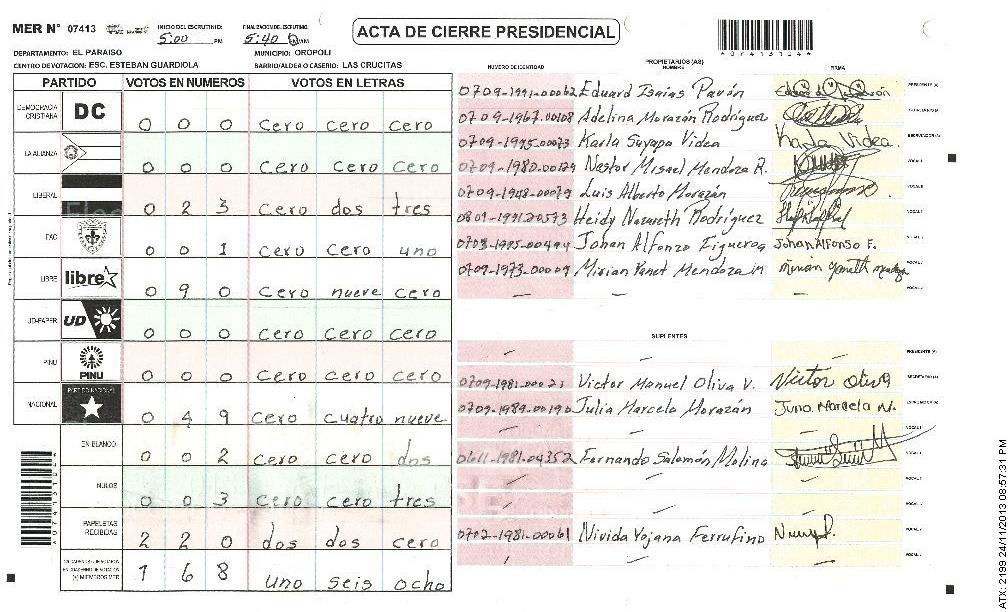 MER N° 07413 INICIO DEL ESCRUTINIO: 5:00 PM FINALIZACION DEL ESCRUTINIO: 5:40 PM
ACTA DE CIERRE PRESIDENCIAL
DEPARTAMENTO: EL PARAISO MUNICIPIO: OROPOLI
CENTRO DE VOTACION: ESC. ESTEBAN GUARDIOLA BARRIO/ALDEA O CASERIO: LAS CRUCITAS
PARTIDO VOTOS EN NUMEROS VOTOS EN LETRAS
DEMOCRACIA CRISTIANA DC 0 0 0 cero cero cero
LA ALIANZA 0 0 0 cero cero cero
LIBERAL 0 2 3 cero dos tres
PAC 0 0 1 cero cero uno
LIBRE libre 0 9 0 cero nueve cero
UD-FAPER UD 0 0 0 cero cero cero
PINU PINU 0 0 0 cero cero cero
NACIONAL PARTIDO NACIONAL 0 4 9 cero cuatro nueve
EN BLANCO 0 0 2 cero cero dos
NULOS 0 0 3 cero cero tres
PAPELETAS RECIBIDAS 2 2 0 dos dos cero
(+) MIEMBROS MER 1 6 8 uno seis ocho
PROPIETARIOS (AS)
NUMERO DE IDENTIDAD NOMBRE FIRMA
0709-1991-00062 Eduard Isaias Pavón PRESIDENTE (A)
0709-1967-00108 Adelina Morazán Rodriguez SECRETARIO (A)
0709-1995-00073 Karla Suyapa Videa Karla Videa. ESCRUTADOR (A)
0709-1980-00129 Nestor Misael Mendoza R. VOCAL
0709-1948-00079 Luis Alberto Morazán VOCAL
0801-1991-20573 Heidy Nazareth Rodríguez VOCAL
0703-1995-00494 Johan Alfonzo Figueroa Johan Alfonso F. VOCAL
0709-1973-00009 Mirian Yanet Mendoza M VOCAL
SUPLENTES
PRESIDENTE (A)
0709-1981-00023 Victor Manuel Oliva V. Victor Oliva SECRETARIO (A)
0709-1989-00190 Julia Marcela Morazán Marcela M. ESCRUTADOR (A)
VOCAL
0611-1981-04352 Fernando Salomón Molina VOCAL
VOCAL
VOCAL
0702-1981-00061 Nivida Yojana Ferrufino VOCAL
VOCAL
ATX: 2199 24/11/2013 08:57:31 PM